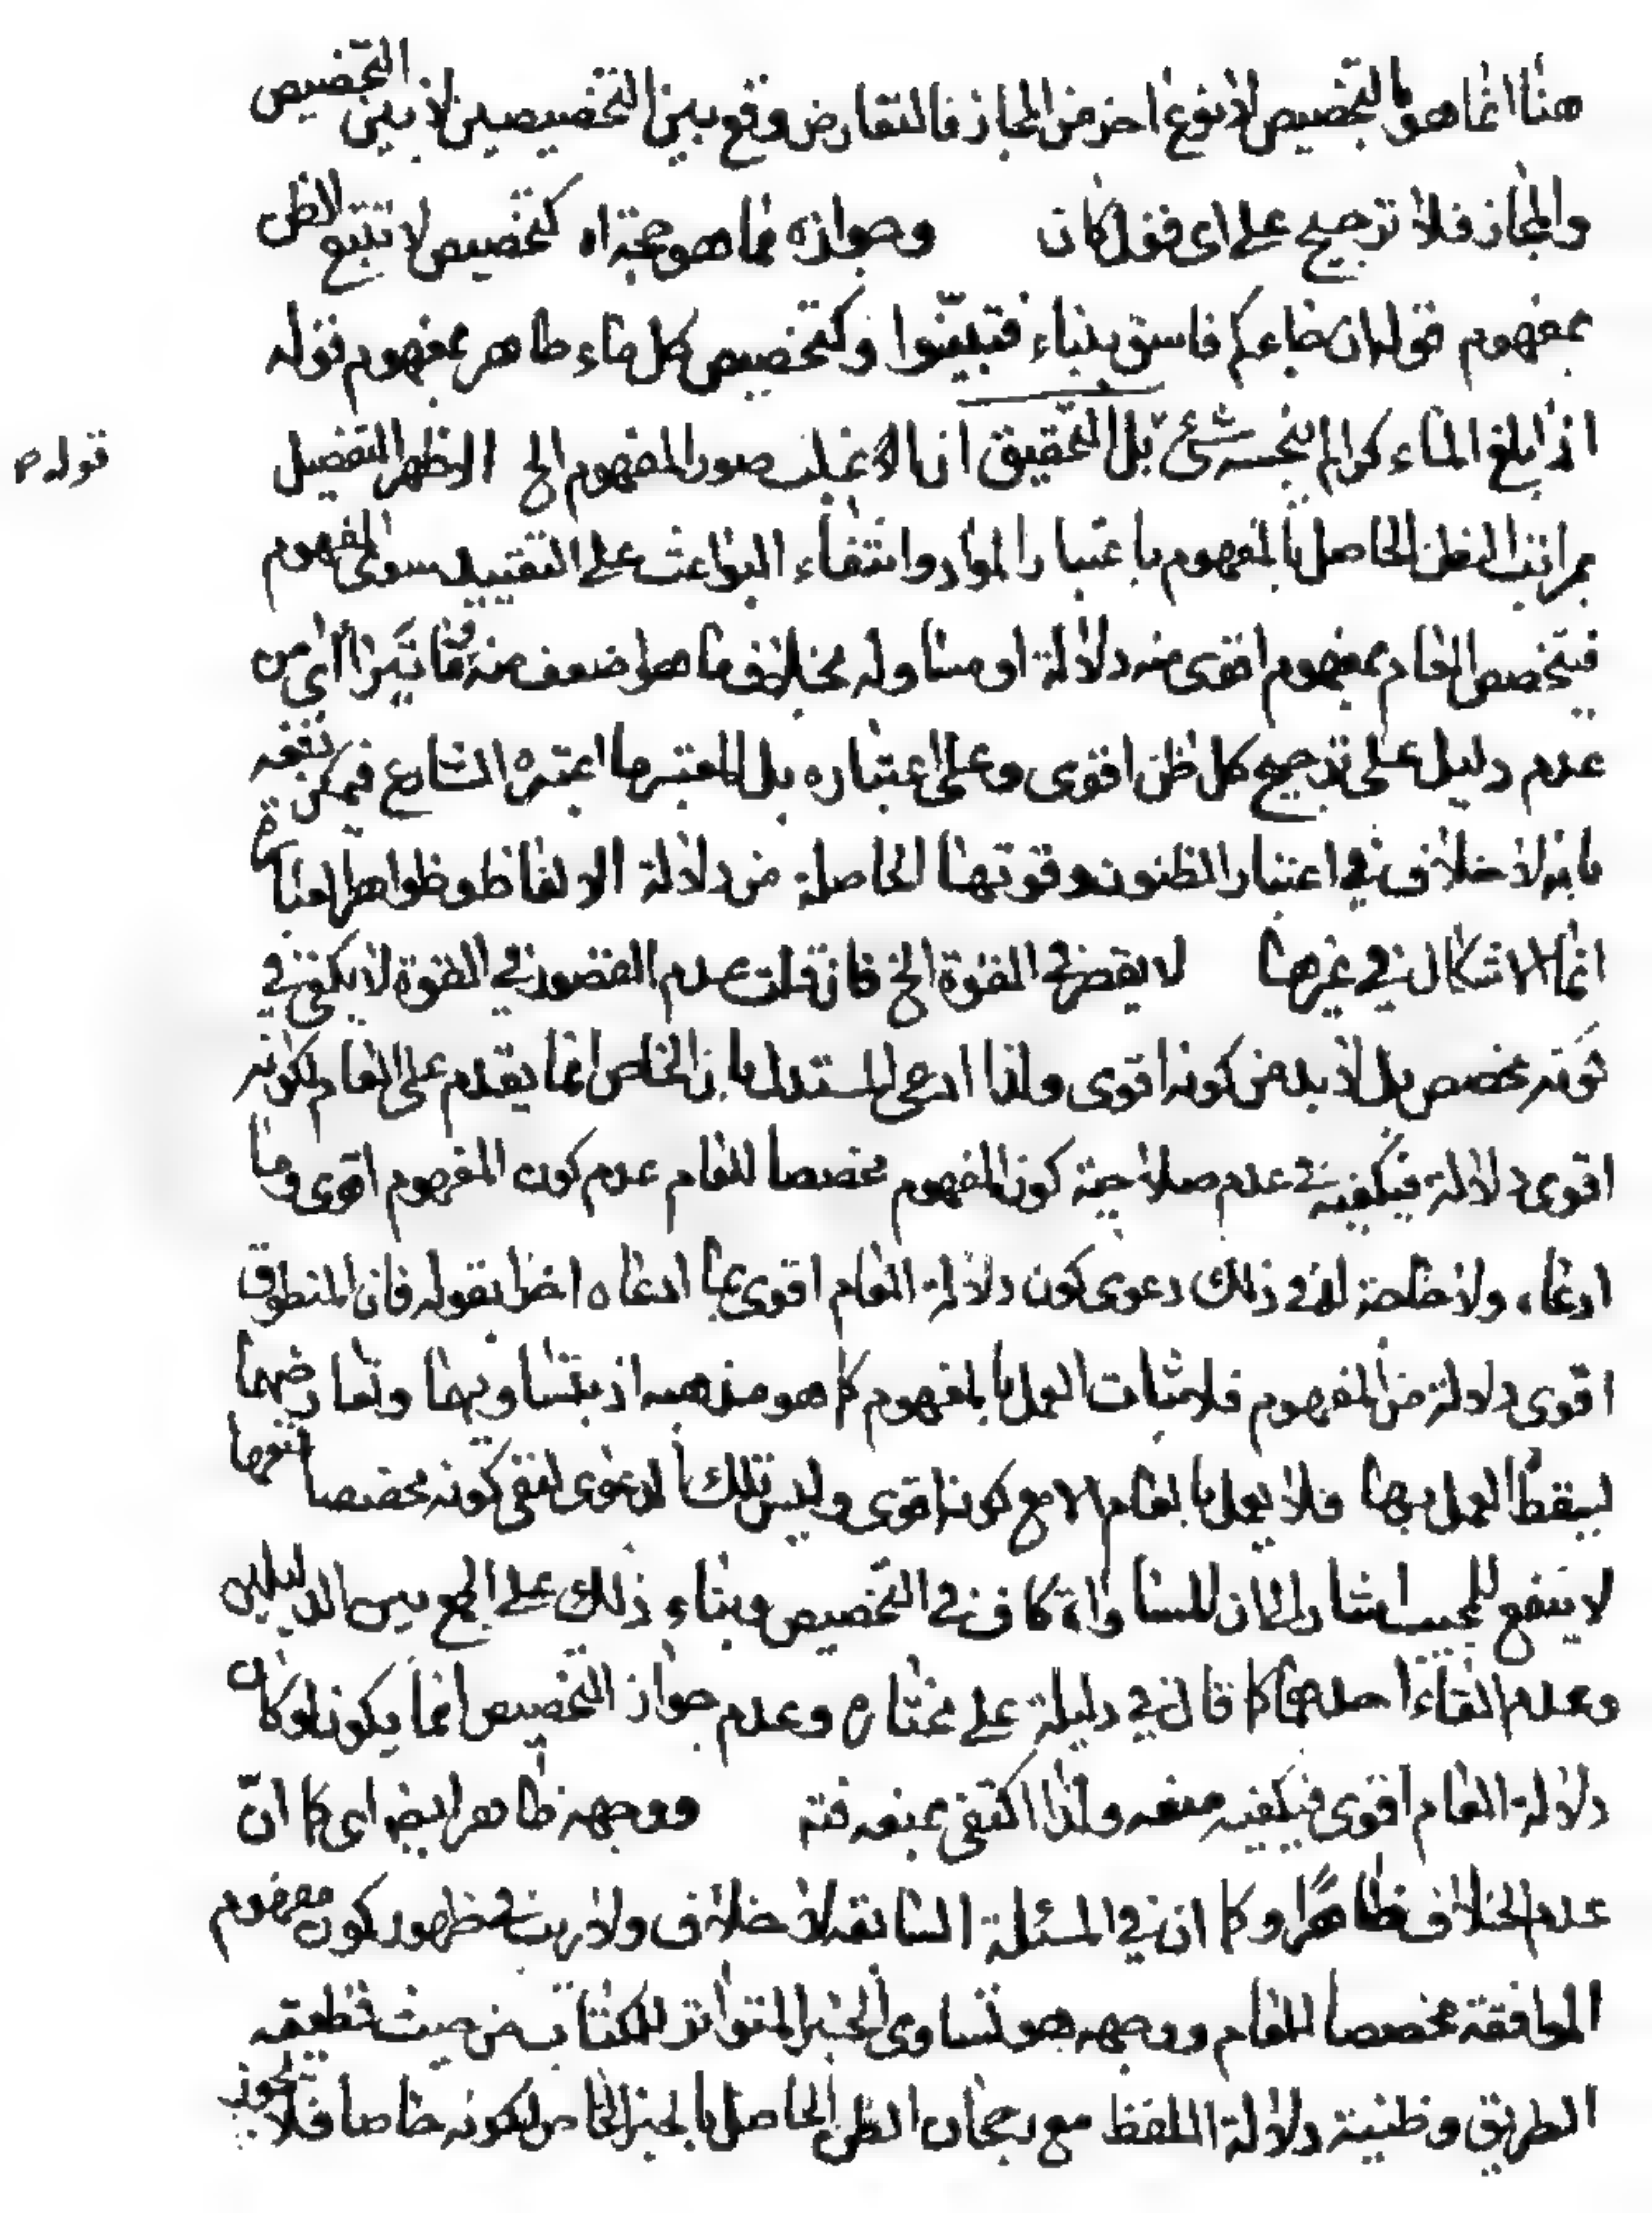 هنا انما هو بالتخصيص لا نوع اخر من المجاز فالتعارض وقع بين التخصيصين لا بين التخصيص
والمجاز فلا ترجيح على اى قول كان وجوازه مما هو حجة اه كتخصيص لا تتبع الظن
بمفهوم قوله ان جاءكم فاسق بنباء فتبينوا وكتخصيص كل ماء طاهر بمفهوم قوله
اذا بلغ الماء كرا لم ينجسه شئ بل التحقيق ان اغلب صور المفهوم الخ الاظهر التفصيل
قوله ص
بمراتب الظن الحاصل بالمفهوم باعتبار الموارد وانتفاء البواعث على التقييد سوى المفهوم
فيتخصص العام بمفهوم اقوى منه دلالة او مساو له بخلاف ما هو اضعف منه اى من
عدم دليل على ترجيح كل ظن اقوى وعلى اعتباره بل المعتبر ما اعتبره الشارع فيمكن دفعه
بانه لا خلاف فى اعتبار الظنون وقوتها الحاصلة من دلالة الالفاظ وظواهر العبارة
انما الاشكال فى غيرها لا يقصر فى القوة الخ فان قلت عدم القصور فى القوة لا يكفى فى
كونه مخصص بل لا بد من كونه اقوى ولذا ادعى المستدل بان الخاص انما يقدم على العام لكونه
اقوى دلالة فيكفيه فى عدم صلاحية كون المفهوم مخصصا للعام عدم كون المفهوم اقوى وما
ادعاه ولا حاجة له فى ذلك دعوى كون دلالة العام اقوى عما ادعاه اخرا بقوله فان المنطوق
اقوى دلالة من المفهوم فلاثبات العمل بالمفهوم كما هو مذهبه اذ بتساويهما وتعارضهما
يسقط العمل بهما فلا يعمل بالعام الا مع كونه اقوى وليس تلك الدعوى لنفى كونه مخصصا
لا ينفع للمجيب اشار الى ان المساواة كاف فى التخصيص وبناء ذلك على الجمع بين الدليلين
وعدم القاء احدهما كما قال فى دليله على مختاره وعدم جواز التخصيص انما يكون لو كان
دلالة العام اقوى فيكفيه منعه ولذا اكتفى بمنعه فته ووجهه ظاهر ايضا اى كما ان
عدم الخلاف ظاهرا وكما ان فى المسئلة السابقة لا خلاف ولا ريب فى ظهور كون مفهوم
الموافقة مخصصا للعام ووجهه هو تساوى الخبر المتواتر للكتاب من حيث قطعية
الطريق وظنية دلالة اللفظ مع رجحان الظن الحاصل بالخبر الخاص لكونه خاصا فلا يجوز